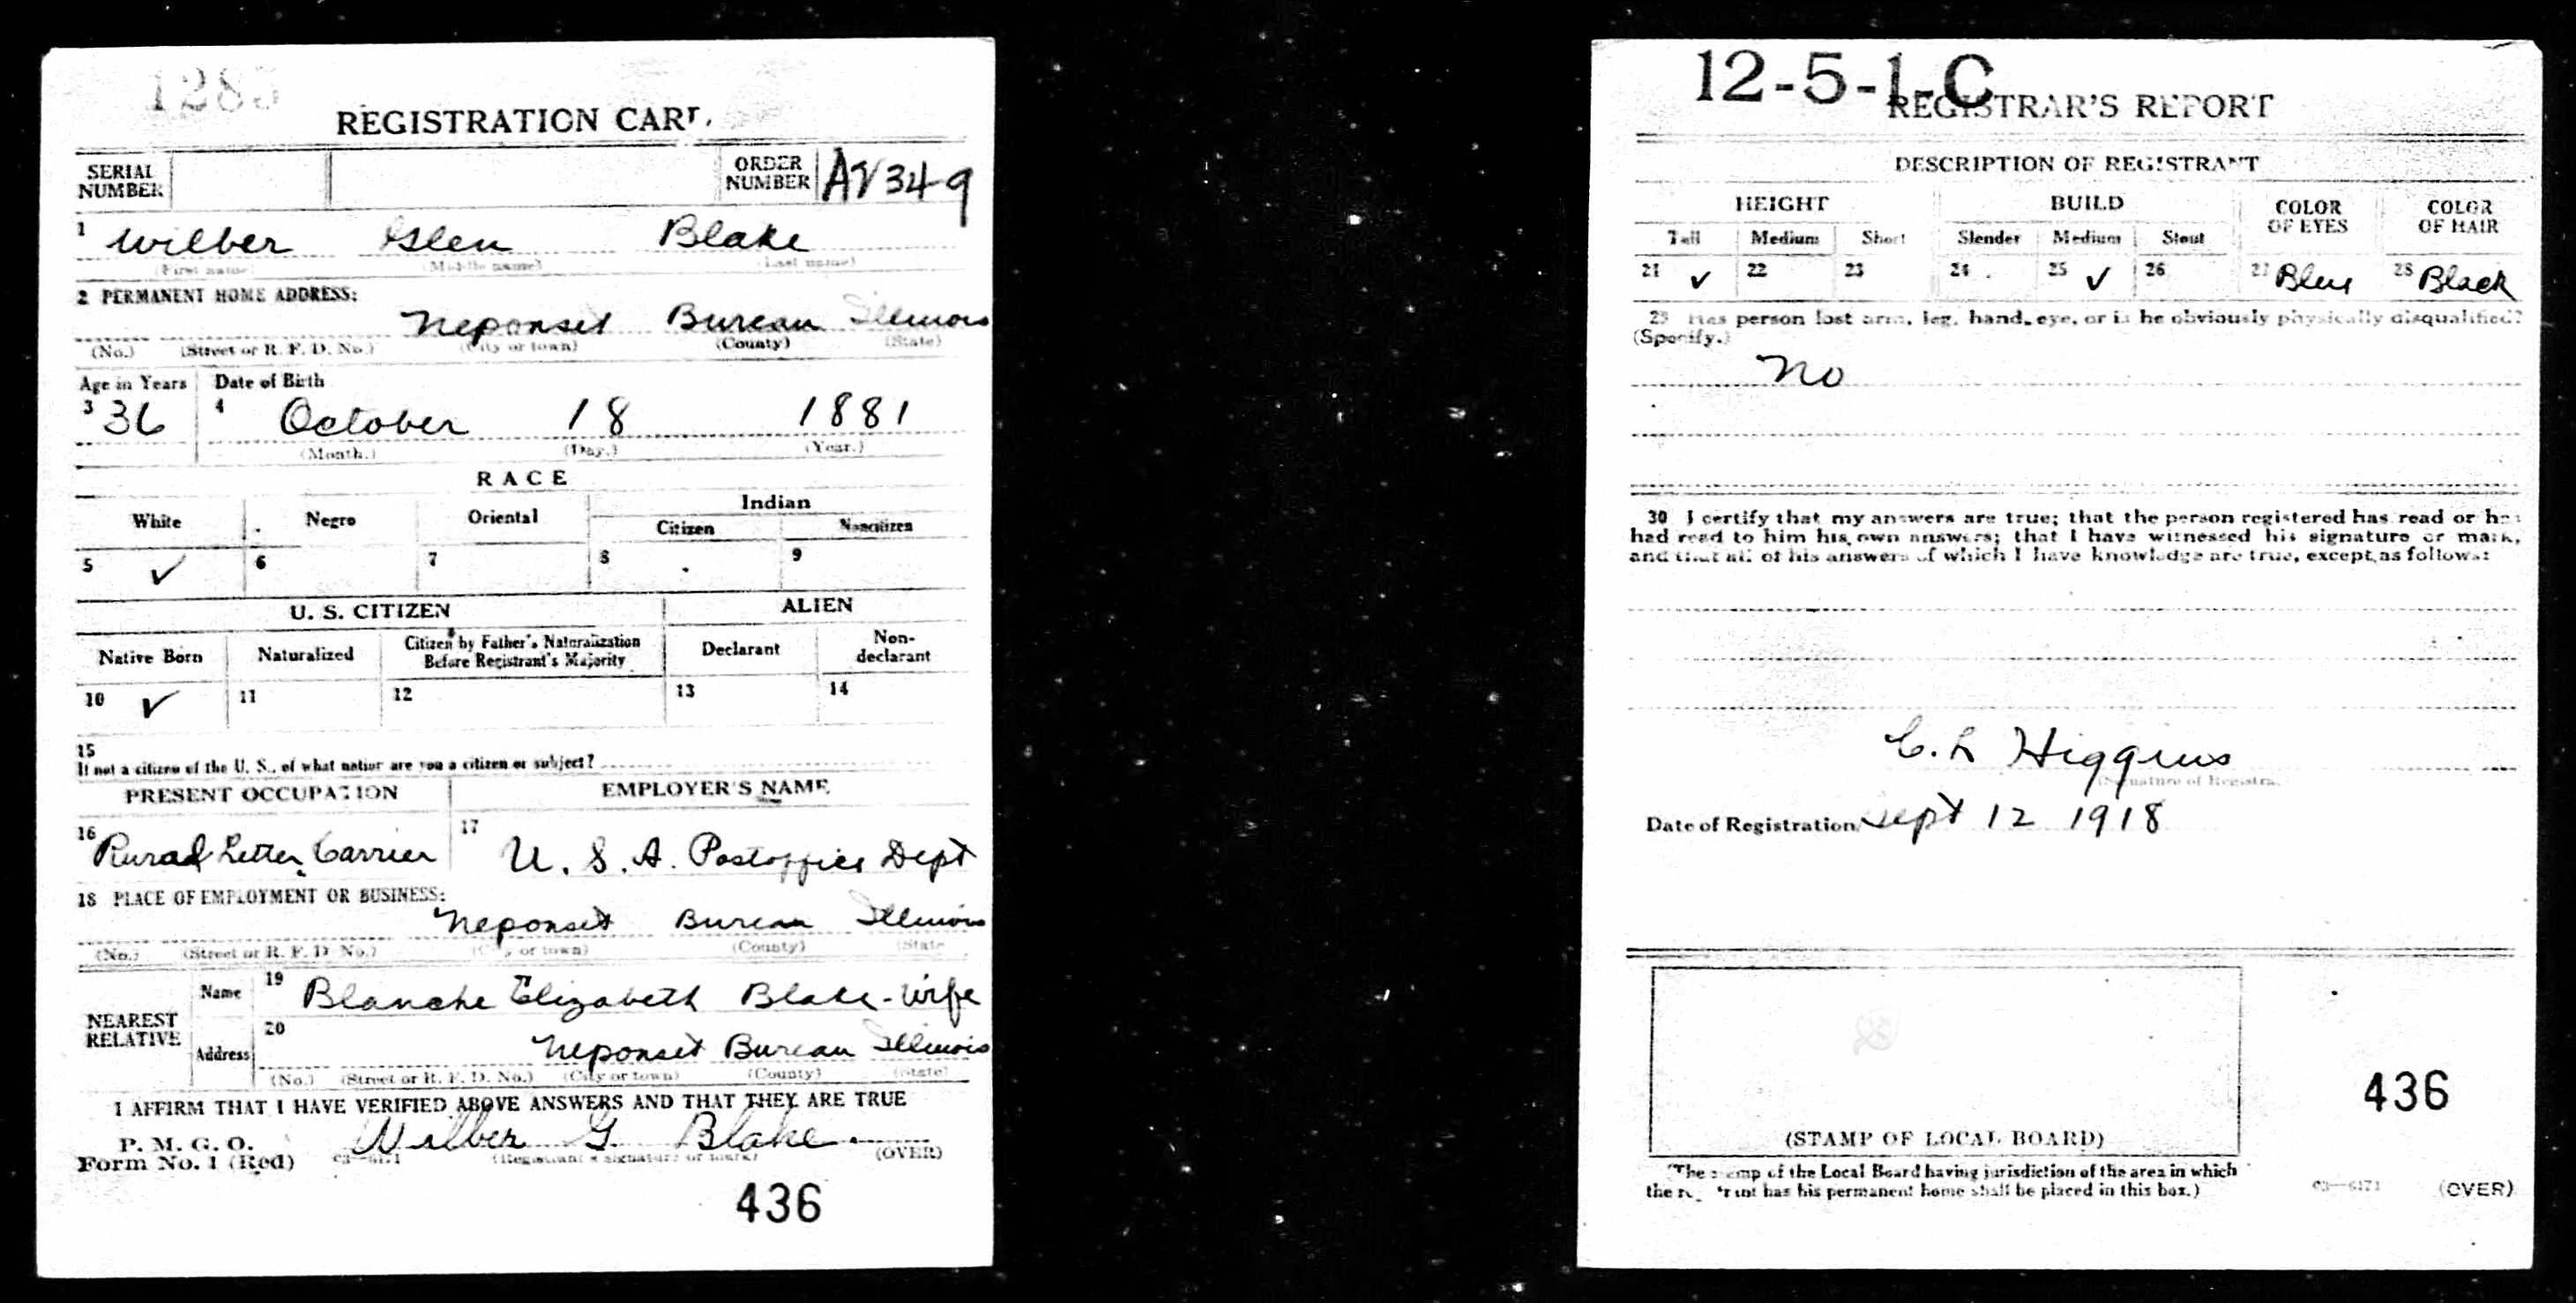 1285
REGISTRATION CARD
SERIAL NUMBER
ORDER NUMBER A2349
1 Wilber Glen Blake
(First name) (Middle name) (Last name)
2 PERMANENT HOME ADDRESS:
Neponset Bureau Illinois
(No.) (Street or R. F. D. No.) (City or town) (County) (State)
Age in Years Date of Birth
3 36 4 October 18 1881
(Month.) (Day.) (Year.)
RACE
White Negro Oriental Indian
Citizen Noncitizen
5 ✓ 6 7 8 9
U. S. CITIZEN ALIEN
Native Born Naturalized Citizen by Father's Naturalization Before Registrant's Majority Declarant Non-declarant
10 ✓ 11 12 13 14
15
If not a citizen of the U. S., of what nation are you a citizen or subject?
PRESENT OCCUPATION EMPLOYER'S NAME
16 Rural Letter Carrier 17 U. S. A. Postoffice Dept
18 PLACE OF EMPLOYMENT OR BUSINESS:
Neponset Bureau Illinois
(No.) (Street or R. F. D. No.) (City or town) (County) (State
NEAREST RELATIVE
Name 19 Blanche Elizabeth Blake - Wife
Address 20 Neponset Bureau Illinois
(No.) (Street or R. F. D. No.) (City or town) (County) (State)
I AFFIRM THAT I HAVE VERIFIED ABOVE ANSWERS AND THAT THEY ARE TRUE
P. M. G. O.
Form No. 1 (Red) 03—6171 Wilber G. Blake.
(Registrant's signature or mark) (OVER)
436
12-5-1-C
REGISTRAR'S REPORT
DESCRIPTION OF REGISTRANT
HEIGHT BUILD COLOR OF EYES COLOR OF HAIR
Tall Medium Short Slender Medium Stout
21 ✓ 22 23 24 25 ✓ 26 27 Blue 28 Black
29 Has person lost arm, leg, hand, eye, or is he obviously physically disqualified?
(Specify.)
No
30 I certify that my answers are true; that the person registered has read or has
had read to him his own answers; that I have witnessed his signature or mark,
and that all of his answers of which I have knowledge are true, except as follows:
C. L Higgins
(Signature of Registrar
Date of Registration Sept 12 1918
(STAMP OF LOCAL BOARD)
436
(The stamp of the Local Board having jurisdiction of the area in which
the registrant has his permanent home shall be placed in this box.)
03—6171 (OVER)